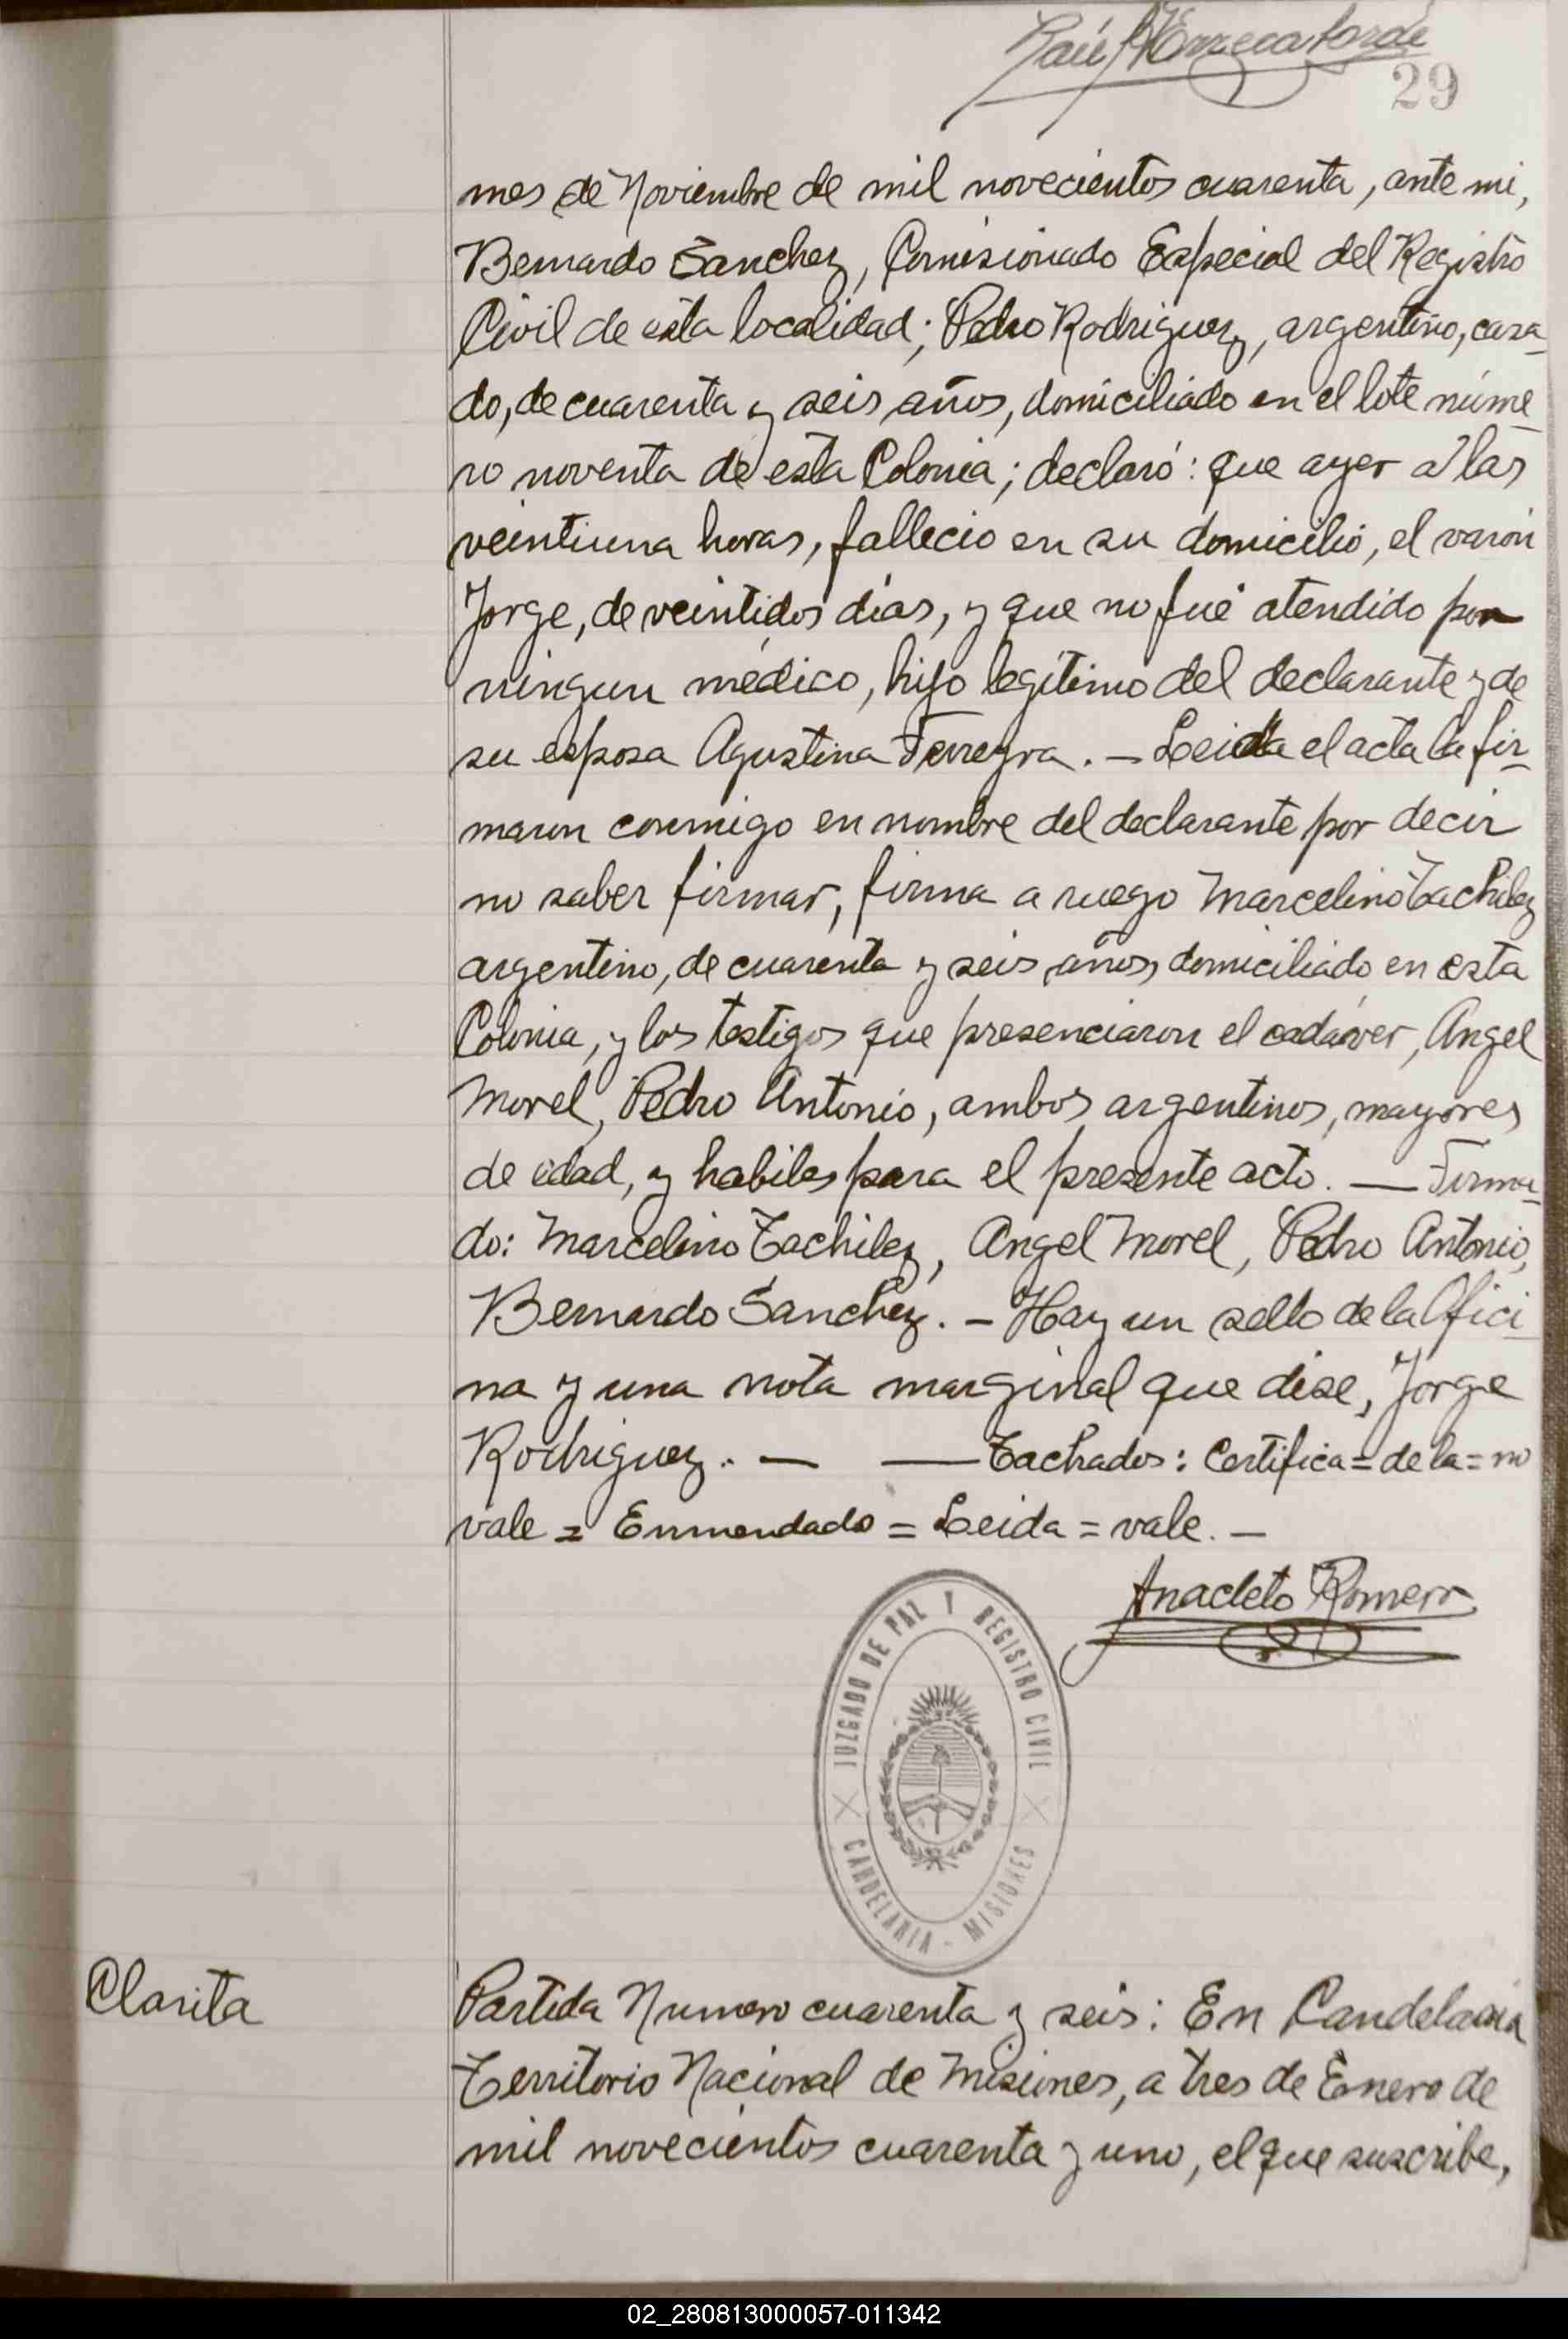 Raúl
29
mes de Noviembre de mil novecientos cuarenta, ante mi,
Bernardo Sanchez, Comisionado Especial del Registro
Civil de esta localidad; Pedro Rodriguez, argentino, casa-
do, de cuarenta y seis años, domiciliado en el lote núme-
ro noventa de esta Colonia; declaró: que ayer a las
veintiuna horas, fallecio en su domicilio, el varón
Jorge, de veintidos días, y que no fué atendido por
ningun médico, hijo legítimo del declarante y de
su esposa Agustina Ferreyra. — Leida el acta la fir-
maron conmigo en nombre del declarante por decir
no saber firmar, firma a ruego Marcelino Tachilez
argentino, de cuarenta y seis años, domiciliado en esta
Colonia, y los testigos que presenciaron el cadáver, Angel
Morel, Pedro Antonio, ambos argentinos, mayores
de edad, y habiles para el presente acto. — Firma-
do: Marcelino Tachilez, Angel Morel, Pedro Antonio,
Bernardo Sanchez. — Hay un sello de la Ofici-
na y una nota marginal que dise, Jorge
Rodriguez. — — Tachados: Certifica = de la = no
vale = Enmendado = Leida = vale. —
Anacleto Romero
JUZGADO DE PAZ Y REGISTRO CIVIL
CANDELARIA - MISIONES
Clarita
Partida Numero cuarenta y seis: En Candelaria
Territorio Nacional de Misiones, a tres de Enero de
mil novecientos cuarenta y uno, el que suscribe,
02_280813000057-011342